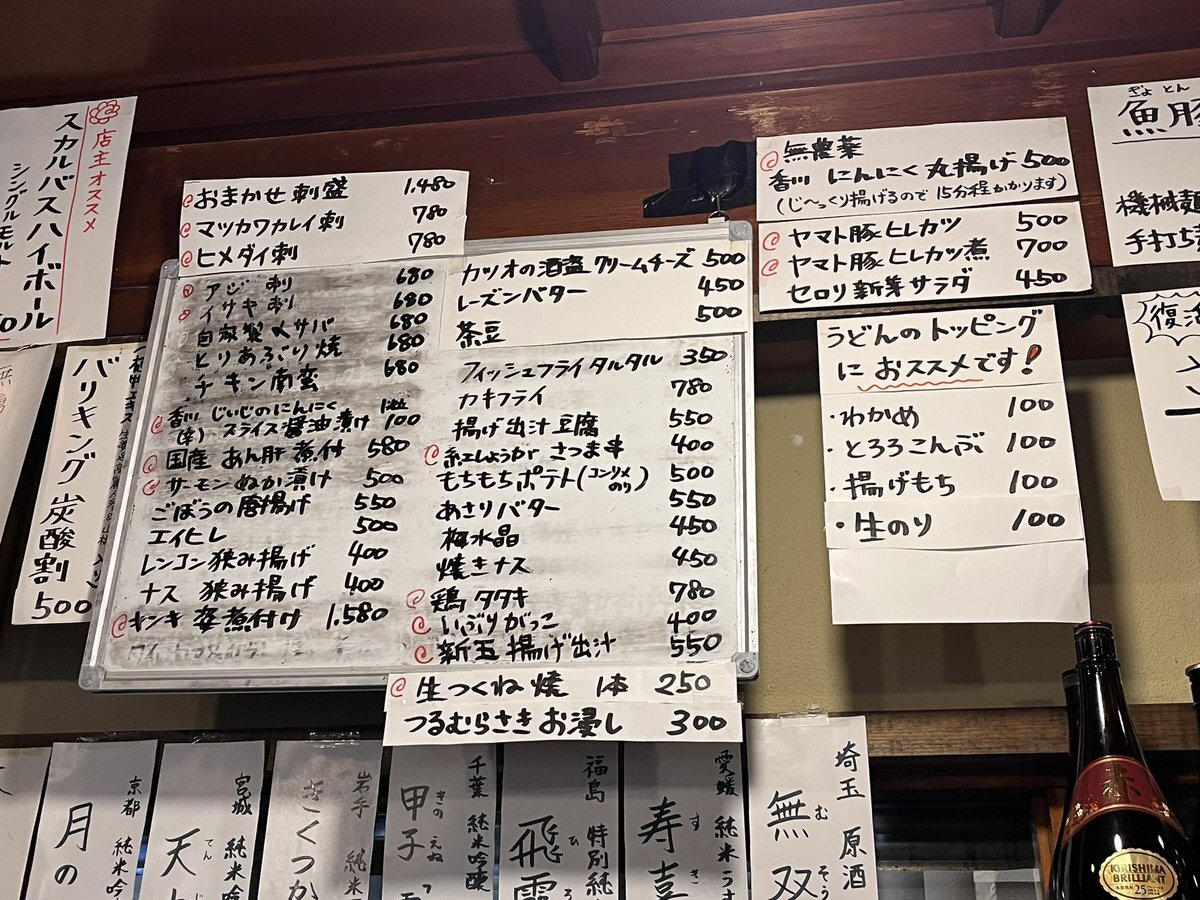 店主オススメ
スカルパスハイボール
シングルモルト
バリキング炭酸割 500
おまかせ刺盛 1.480
マツカワカレイ刺 780
ヒメダイ刺 780
アジ刺 680
イサキ刺 680
自家製〆サバ 680
とりあぶり焼 680
チキン南蛮 680
香川 じいじのにんにく
(辛) スライス醤油漬け 100
国産 あん肝煮付 580
サーモンぬか漬け 500
ごぼうの唐揚げ 550
エイヒレ 500
レンコン狭み揚げ 400
ナス 狭み揚げ 400
キンキ 姿煮付け 1.580
カツオの酒盗クリームチーズ 500
レーズンバター 450
茶豆 500
フィッシュフライタルタル 350
カキフライ 780
揚げ出汁豆腐 550
紅しょうが さつま串 400
もちもちポテト(コンソメ のり) 500
あさりバター 550
梅水晶 450
焼きナス 450
鶏タタキ 780
いぶりがっこ 400
新玉揚げ出汁 550
生つくね焼 1本 250
つるむらさきお浸し 300
無農薬
香川 にんにく丸揚げ 500
(じ〜っくり揚げるので 15分程かかります)
ヤマト豚ヒレカツ 500
ヤマト豚ヒレカツ煮 700
セロリ新芽サラダ 450
うどんのトッピング
におススメです!
・わかめ 100
・とろろこんぶ 100
・揚げもち 100
・生のり 100
ぎょ とん
魚豚
機械麺
手打ち
復活
京都 純米吟
月の
宮城 純米吟
天
てん
岩手 純米
きくつか
千葉 純米吟醸
甲子
きのえね
福島 特別純
飛露
ひろ
愛媛 純米うす
寿喜
すき
埼玉 原酒
無双
むそう
赤
KIRISHIMA
BRILLIANT
25